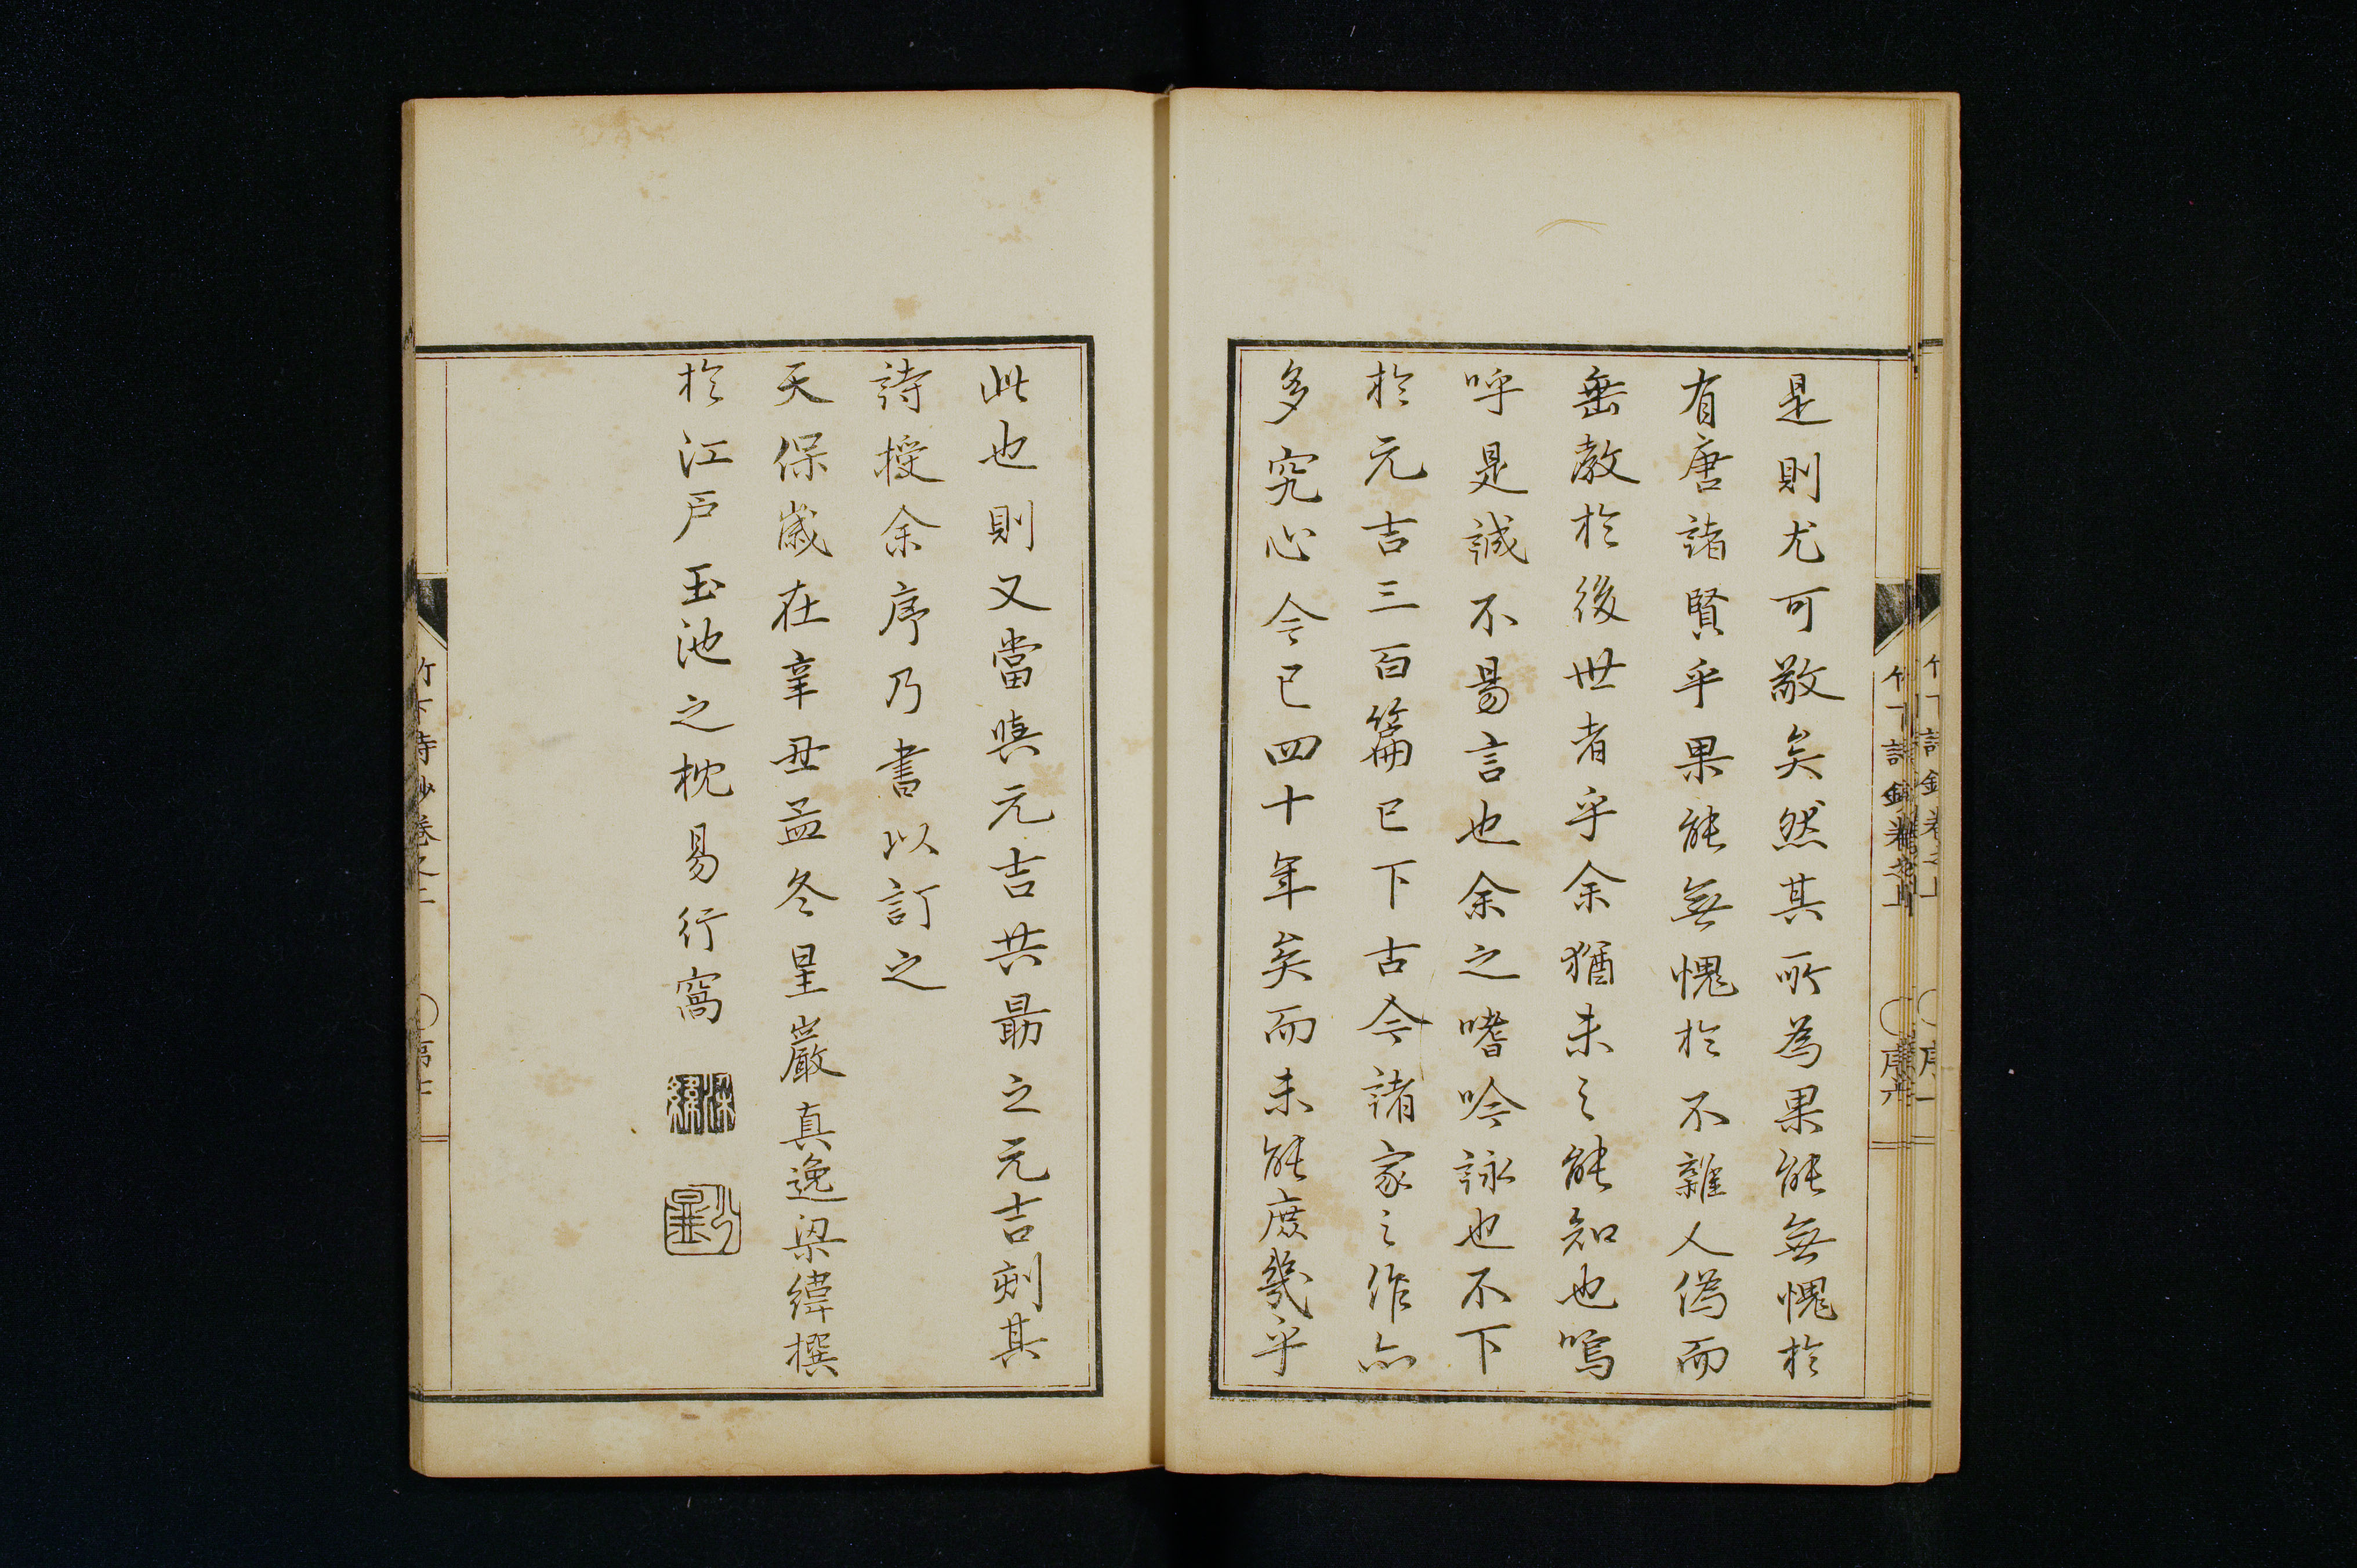 是則尤可敬矣然其所為果能無愧於
有唐諸賢乎果能無愧於不雜人偽而
垂教於後世者乎余猶未之能知也嗚
呼是誠不易言也余之嗜吟詠也不下
於元吉三百篇已下古今諸家之作亦
多究心今已四十年矣而未能庶幾乎
此也則又當與元吉共勗之元吉刻其
詩授余序乃書以訂之
天保歲在辛丑孟冬星巖真逸梁緯撰
於江戶玉池之枕易行窩
梁緯
公
竹下詩鈔卷之上